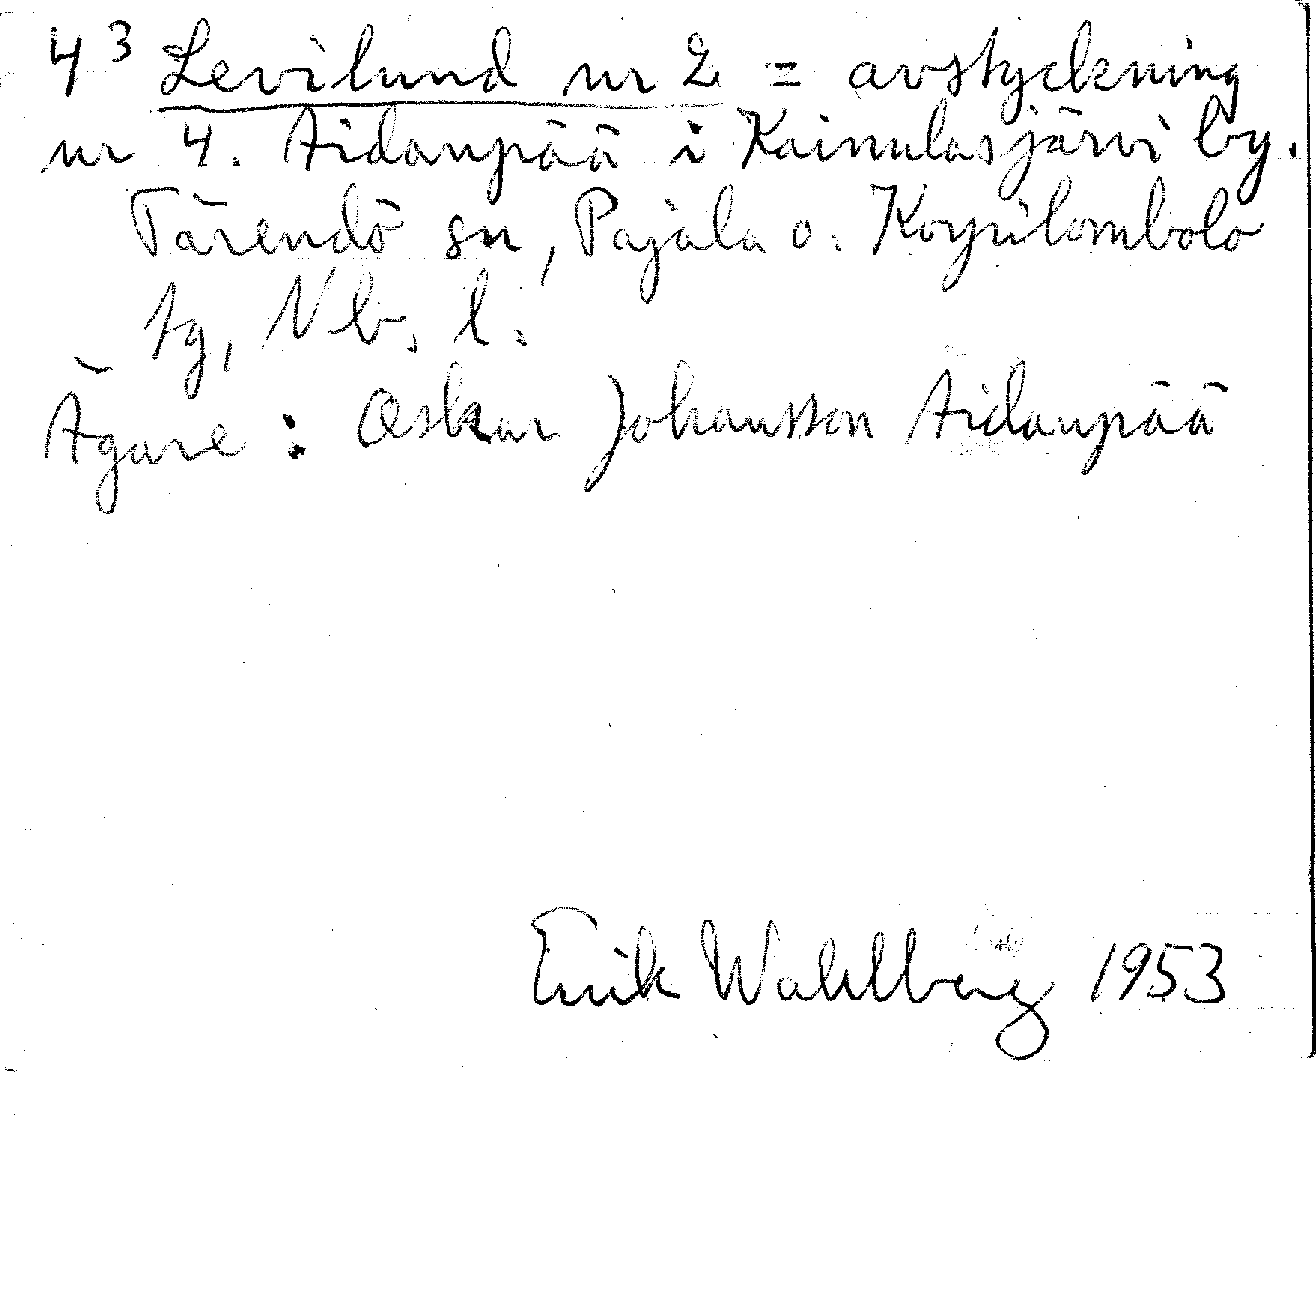 4³ Levilund nr 2 = avstyckning
nr 4. Aidanpää i Kainulasjärvi by.
Tärendö sn, Pajala o. Korpilombolo
tg, Nb. l.
Ägare : Oskar Johansson Aidanpää
Erik Wahlberg 1953